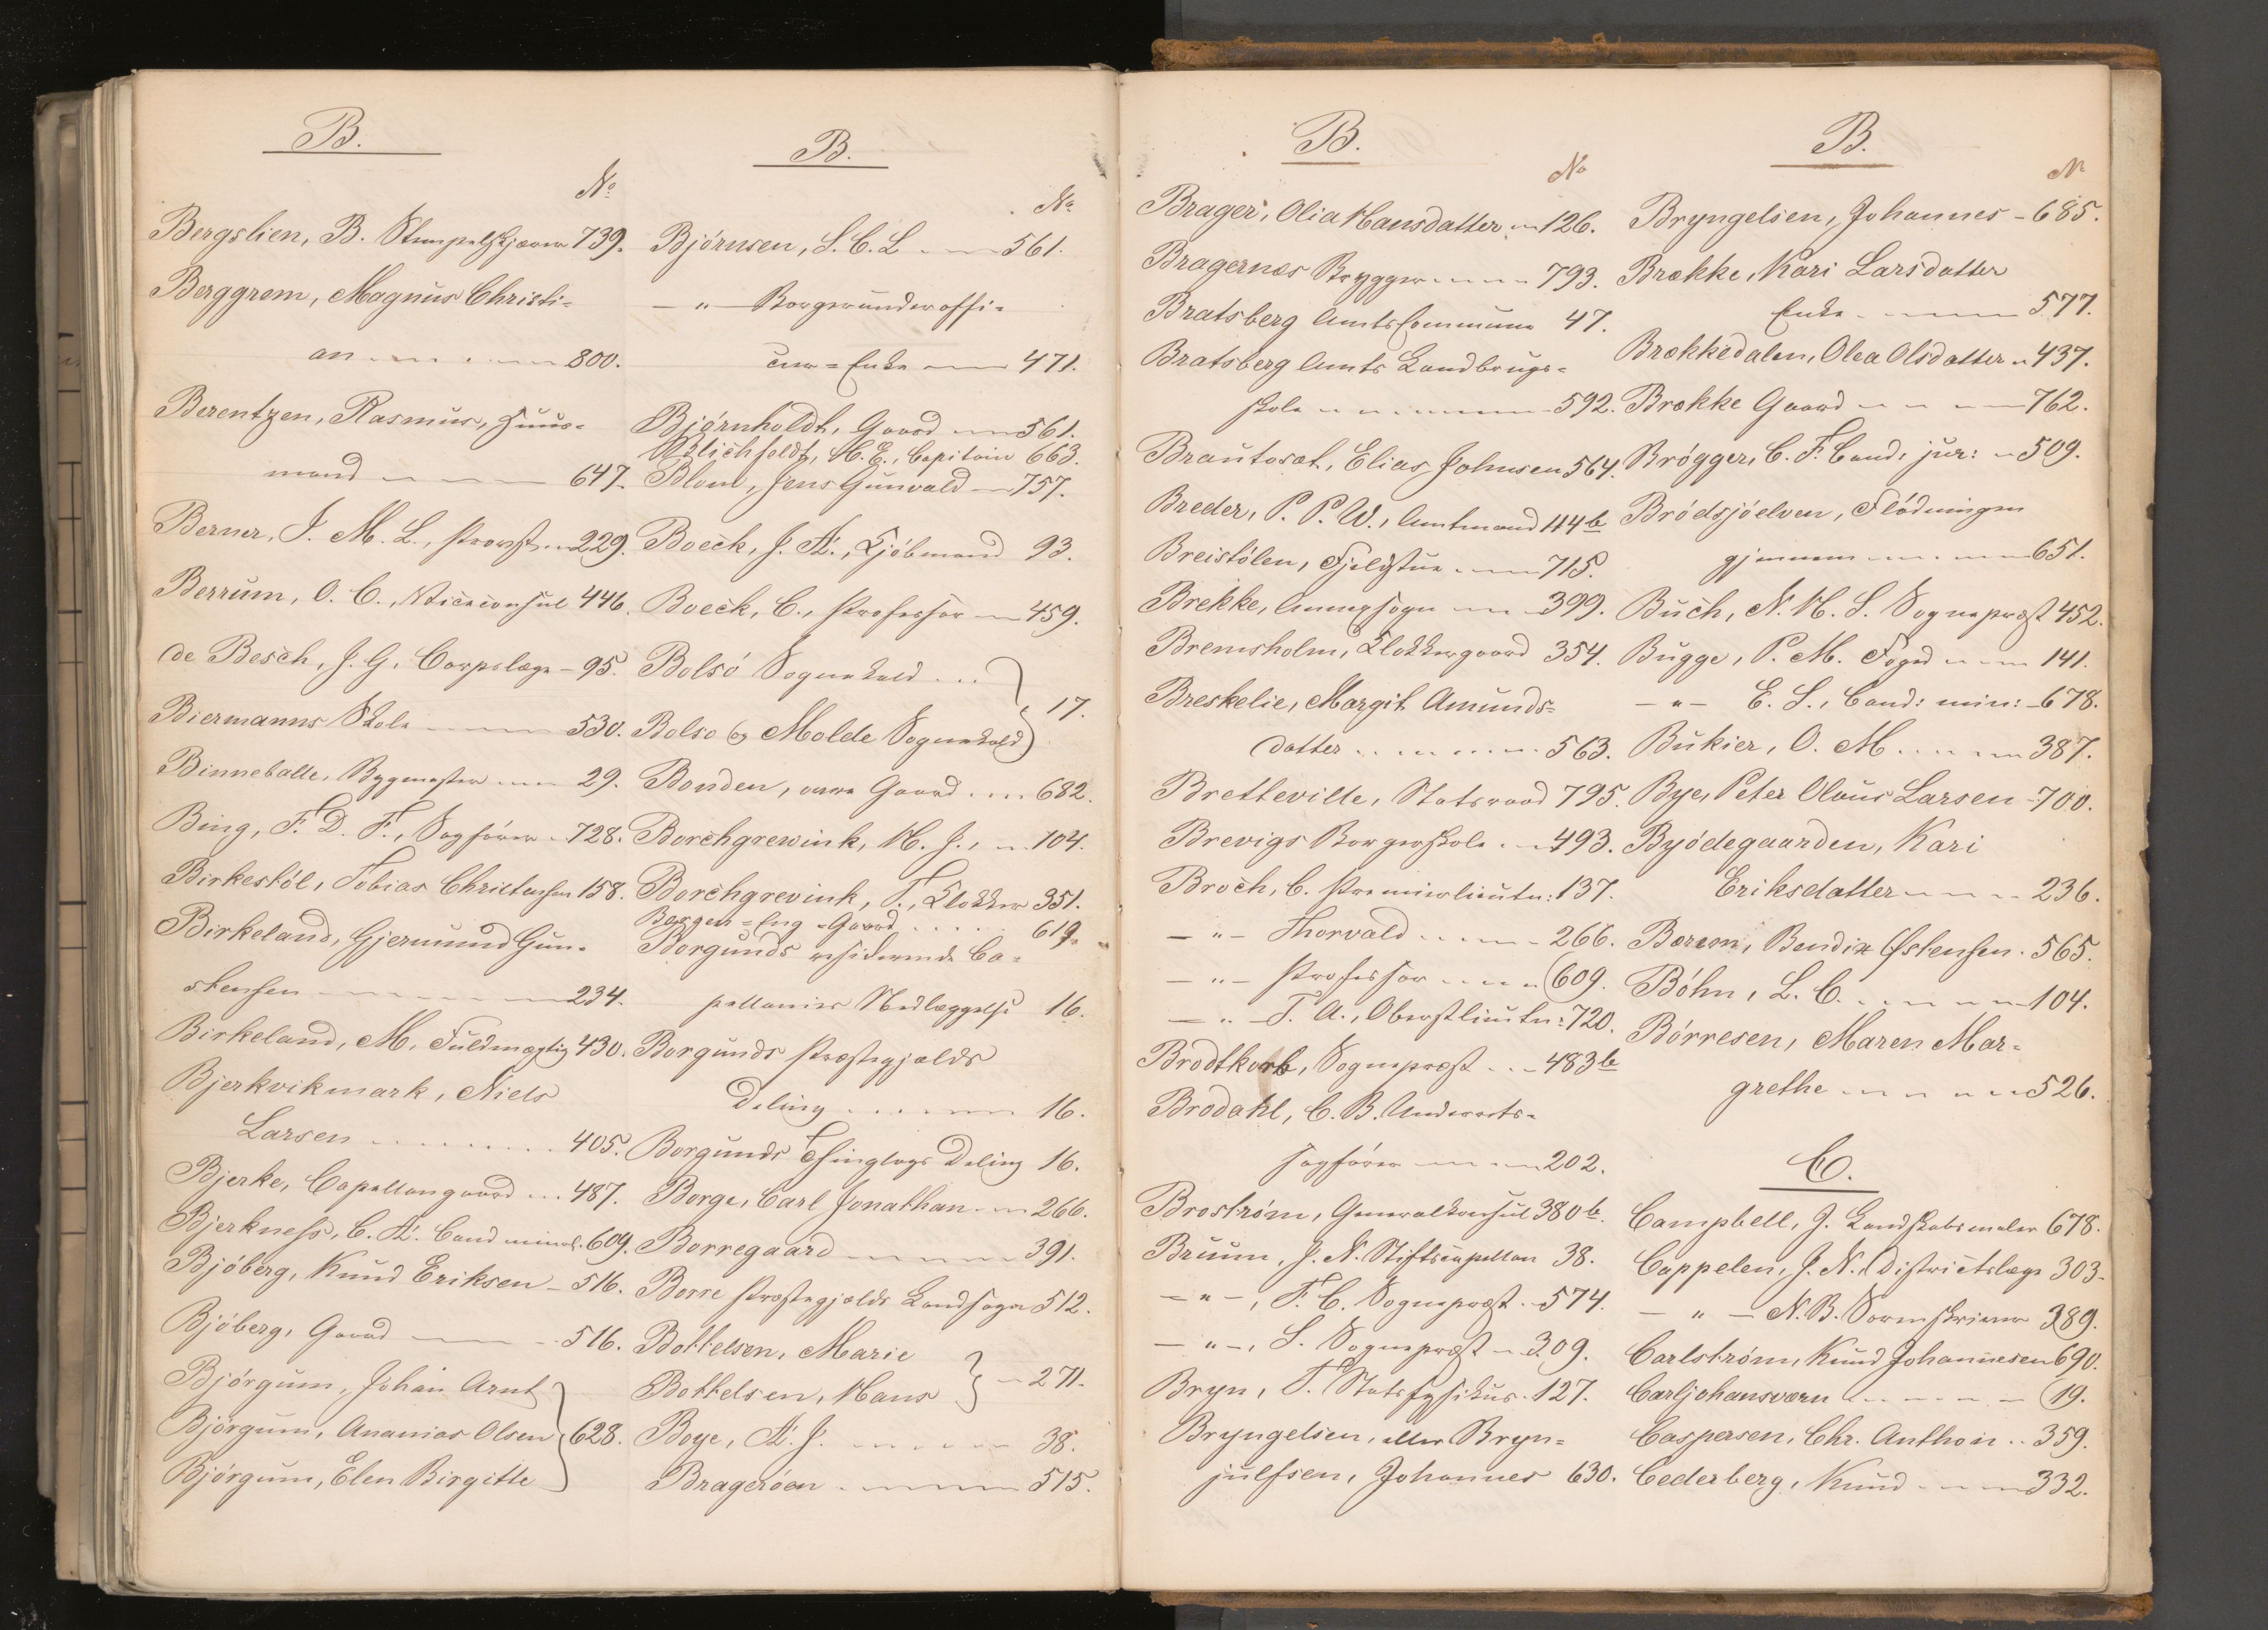 B.
No
Bergslien, B. Stempelskjærer 739.
Berggrem, Magnus Christi=
an 800.
Berentzen, Rasmus, Huus=
mand 647.
Berner, J. M. L., Provst 229.
Berrum, O. C., Viceconsul 446.
de Besch, J. G. Corpslæge 95.
Biermanns Skole 530.
Binneballe, Bygmester 29.
Bing, F. D. F., Sagfører 728.
Birkestöl, Tobias Christensen 158.
Birkeland, Gjermund Gun=
stensen 234.
Birkeland, M. Fuldmægtig 430.
Bjerkvikmark, Niels
Larsen 405.
Bjerke, Capellangaard 487.
Bjerkness, C. A. Cand mineral. 609.
Bjöberg, Knud Eriksen 516.
Bjöberg, Gaard 516.
Björgum, Johan Arnt
Bjorgum, Ananias Olsen 628.
Bjórgum, Elen Birgitte
B.
No
Bjórnsen, S. C. L 561.
— " — Borgerunderoffi=
ceer=Enke 471.
Bjørnholdt, Gaard 561.
Blichfeldt, H. E., Capitain 663.
Blom, Jens Gunvald 757.
Boeck, J. A., Kjöbmand 93.
Boeck, C., Professor 459.
Bolsö Sognekald
Bolso og Molde Sognekald 17.
Bonden, øvre Gaard 682.
Borchgrewink, H. J., 104.
Borchgrevink, T., Klokker 351.
Borgen=Eng=Gaard 619.
Borgunds residerende Ca=
pellanies Nedlæggelse 16.
Borgunds Præstegjælds
Deling 16.
Borgunds Thinglags Deling 16.
Borge, Carl Jonathan 266.
Borregaard 391.
Borre Præstegjælds Landsogn 512.
Bottelsen, Marie
Bottelsen, Hans 271.
Boye, A. J. 38.
Brageröen 515.
B.
No
Brager, Olia Hansdatter 126.
Bragernæs Brygger 793.
Bratsberg Amtscommune 47.
Bratsberg Amts Landbrugs=
skole 592.
Brautaset, Elias Johnsen 564.
Breder, P. P. W., Amtmand 114b
Breistölen, Fjeldstue 715.
Brekke, Annexsogn 399.
Bremsholm, Klokkergaard 354.
Breskelie, Margit Amunds=
datter 563.
Bretteville, Statsraad 795.
Brevigs Borgerskole 493.
Broch, C. Premierlieutn: 137.
— " — Thorvald 266.
— " — Professor 609.
— " — T. A., Oberstlieutn: 720.
Brodtkorb, Sognepræst 483b
Brodahl, C. B. Underrets=
sagfører 202.
Broström, Generalkonsul 380b.
Bruun, J. N. Stiftscapellan 38.
— " —, F. C. Sognepræst 574.
— " —, S. Sognepræst 309.
Bryn, T. Statsfysikus 127.
Bryngelsen, eller Bryn=
julfsen, Johannes 630.
B.
No
Bryngelsen, Johannes 685.
Brække, Kari Larsdatter
Enke 577.
Brækkedalen, Olea Olsdatter 437.
Brække Gaard 762.
Brógger, C. F. Cand: jur: 509.
Brödsjöelven, Flödningen
gjennem 651.
Buch, N. H. S. Sognepræst 452.
Bugge, P. M. Foged 141.
— " — E. S., Cand: min: 678.
Bukier, O. M 387.
Bye, Peter Olaus Larsen 700.
Byódegaarden, Kari
Eriksdatter 236.
Bærem, Bendix Østensen 565.
Böhn, L. C. 104.
Börresen, Maren Mar=
grethe 526.
C.
Campbell, J. Landskabsmaler 678.
Cappelen, J. N. Districtslæge 303.
— " — N. B. Sorenskriver 389.
Carlström, Knud Johannesen 690.
Carljohansværn 19.
Caspersen, Chr. Anthon 359.
Cederberg, Knud 332.